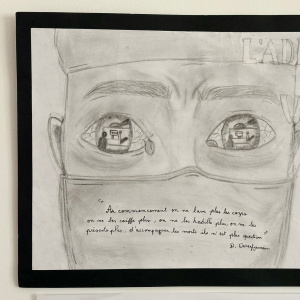 L'AD
V
"
Au commencement on ne lave plus les corps
on ne les coiffe plus, on ne les habille plus, on ne les
plus, d'accompagner les morts il n'est plus question"
D.